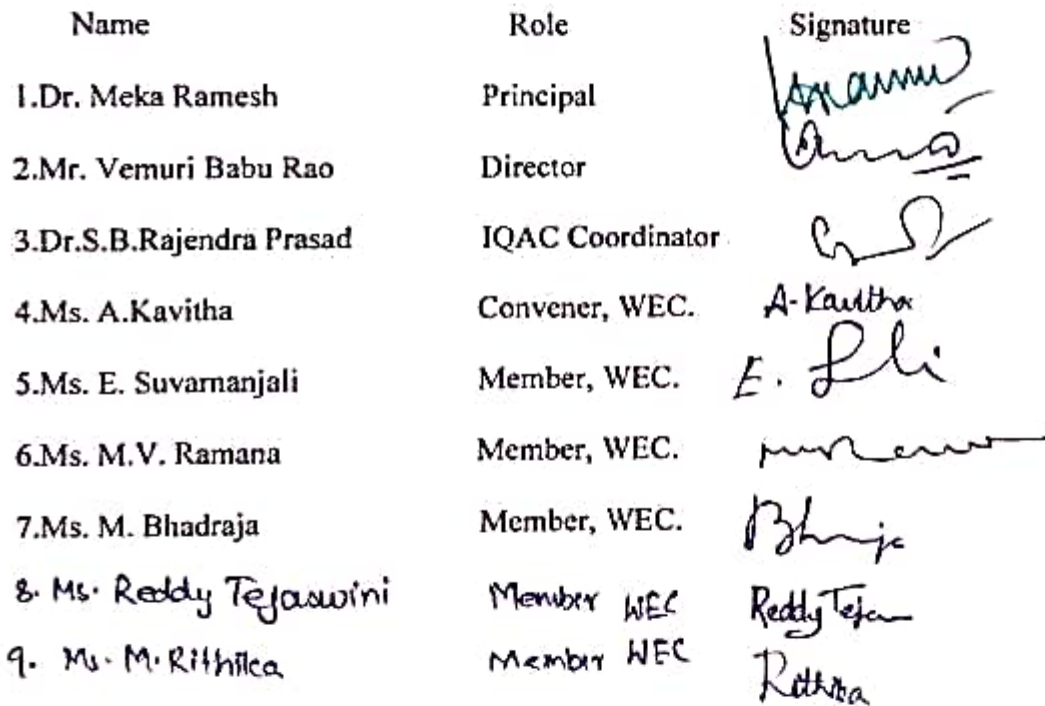 Name Role Signature
1.Dr. Meka Ramesh Principal
2.Mr. Vemuri Babu Rao Director
3.Dr.S.B.Rajendra Prasad IQAC Coordinator
4.Ms. A.Kavitha Convener, WEC. A-Kavitha
5.Ms. E. Suvarnanjali Member, WEC. E.
6.Ms. M.V. Ramana Member, WEC.
7.Ms. M. Bhadraja Member, WEC.
8. Ms. Reddy Tejaswini Member WEC Reddy Teja
9. Ms. M. Rithika Member WEC Rithika